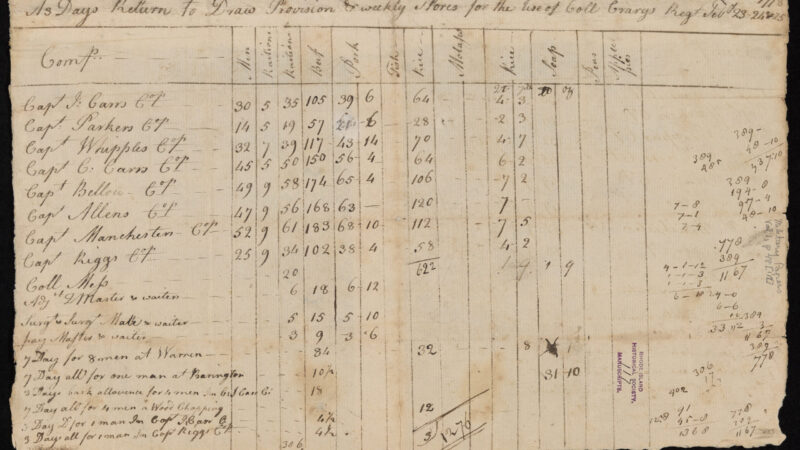 A 3 Days Return to Draw Provision & weekly Stores for the use of Coll Crarys Regt Feby 23-24 & 25
Comps Men Rations Rations Beef Pork Fish Rice Molass Rice Soap Peas
Capt J: Carrs Cop 30 5 35 105 39 6 64 4 3
Capt Parkers Cop 14 5 19 57 21 6 28 2 3
Capt Whipples Cop 32 7 39 117 43 14 70 4 7
Capt C. Carrs Cop 45 5 50 150 56 4 64 6 2
Capt Bellow Cop 49 9 58 174 65 4 106 7 2
Capt Allens Cop 47 9 56 168 63 120 7
Capt Manchester Cop 52 9 61 183 68 10 112 7 5
Capt Riggs Cop 25 9 34 102 38 4 58 4 2
622 1 9
Coll Mess 20
Adjt Q Master & waiter 6 18 6 12
Surgn & Surgn Mate & waiter 5 15 5 10
pay Master & waiter 3 9 3 6
7 Day for 8 men at Warren 84 32 8 1
7 Day all for one man at Barrington 10½ 31 10
3 Days back allowence for 4 men In Cap C Carr Co 18
7 Day all for 4 men a Wood Chopping 12
3 Day Do for 1 man In Capt J Carr C 4½
3 Days all for 1 man In Capt Riggs Cop 4½ 1276
306
389
48-10
389
48
437/10
389
194-8
97-4
48-10
7-8
7-1
2-4
778
389
1167
4-1-12
1-1-3
1-1-3
6-10
24-0
6-6
389
1167
389
778
306
402
91
45-8
1368
778
1167
RHODE ISLAND
HISTORICAL SOCIETY.
MANUSCRIPTS.
Military Papers